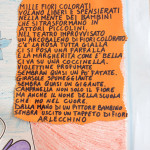 MILLE FIORI COLORATI
VOLANO LIBERI E SPENSIERATI
NELLA MENTE DEI BAMBINI
CHE SI TRASFORMANO IN
ATTORI PICCOLINI.
NEL TEATRO IMPROVVISATO
UN ARCOBALENO DI FIORI COLORATO.
C'È LA ROSA TUTTA GIALLA
CI SI POSA UNA FARFALLA
E LA MARGHERITA CON L'ERBA
CI VA SU UNA COCCINELLA.
VIOLETTINE PROFUMATE
SEMBRAN QUASI UN PO' FATATE.
GIRASOLE SPUMEGGIANTE
SEMBRA QUASI UN GIGANTE.
CAMPANELLA NON SOLO IL FIORE
MA ANCHE IL NOME DELLA SCUOLA
CHE HO NEL CUORE.
DALLA MANO DI UN PITTORE BAMBINO
SEMBRA USCITO UN TAPPETO DI FIORI
ARLECCHINO